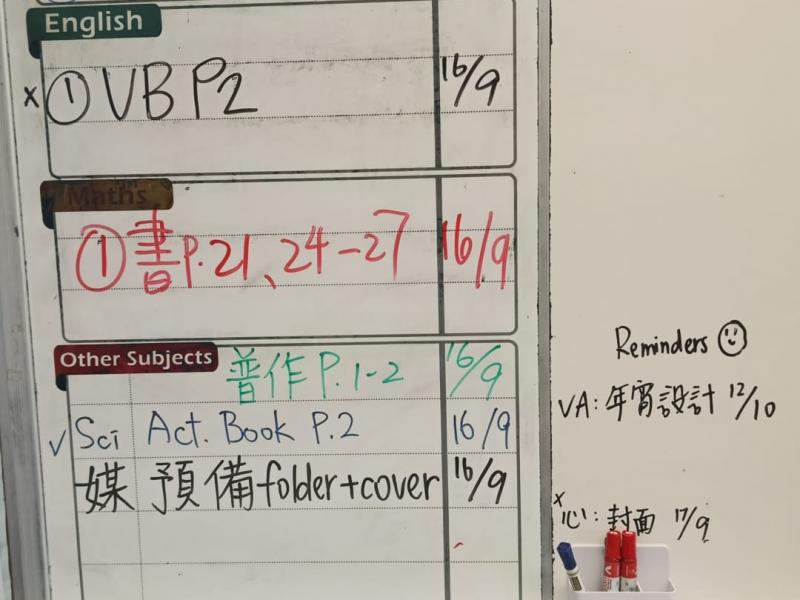 English
x ① VB P2 16/9
Maths
① 書 P.21、24-27 16/9
Other Subjects
普作 P.1-2 16/9
✓ Sci Act. Book P.2 16/9
媒 預備 folder+cover 16/9
Reminders ☺
VA: 年宵設計 12/10
x 心: 封面 17/9